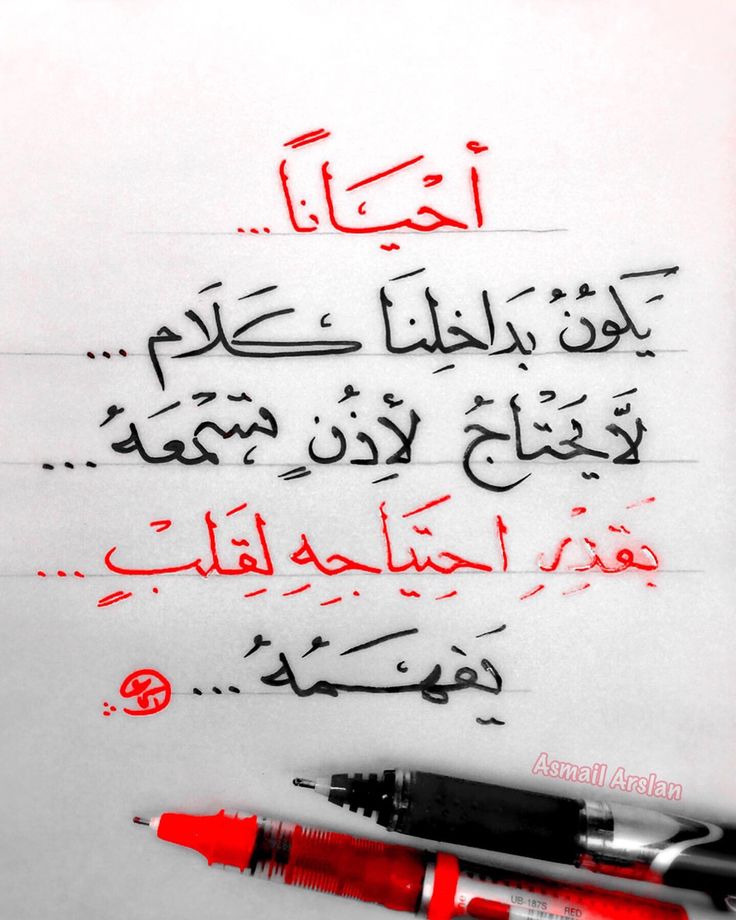 أحْيَاناً ...
يَكُونُ بدَاخِلِنَا كَلَام ...
لَّا يَحْتْاجُ لأِذُنٍ تسْمعَهُ ...
بقَدْرِ احتِيَاجِهِ لِقَلبٍ ...
يَفهَمُهُ ...
Asmail Arslan
UB-187S RED